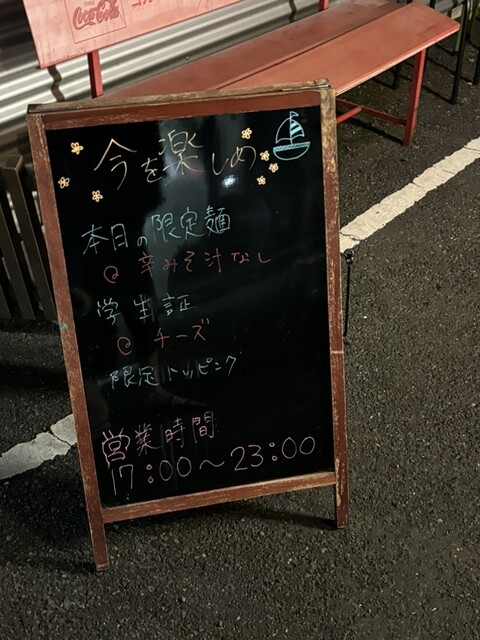 Coca-Cola
今を楽しめ
本日の限定麺
@ 辛みそ汁なし
学生証
@ チーズ
限定トッピング
営業時間
17:00～23:00